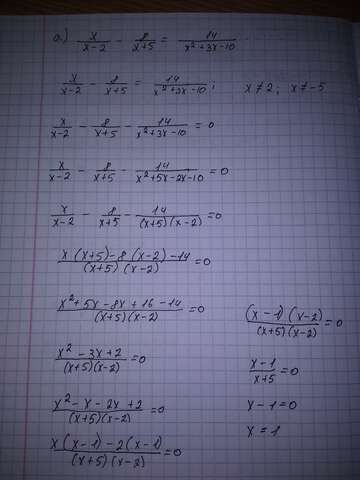 а.) x/(x-2) - 8/(x+5) = 14/(x²+3x-10)
x/(x-2) - 8/(x+5) = 14/(x²+3x-10) ; x≠2; x≠-5
x/(x-2) - 8/(x+5) - 14/(x²+3x-10) = 0
x/(x-2) - 8/(x+5) - 14/(x²+5x-2x-10) = 0
x/(x-2) - 8/(x+5) - 14/((x+5)(x-2)) = 0
(x(x+5)-8(x-2)-14)/((x+5)(x-2)) = 0
(x²+5x-8x+16-14)/((x+5)(x-2)) = 0
(x²-3x+2)/((x+5)(x-2)) = 0
(x²-x-2x+2)/((x+5)(x-2)) = 0
(x(x-1)-2(x-1))/((x+5)(x-2)) = 0
((x-1)(x-2))/((x+5)(x-2)) = 0
(x-1)/(x+5) = 0
x-1=0
x=1